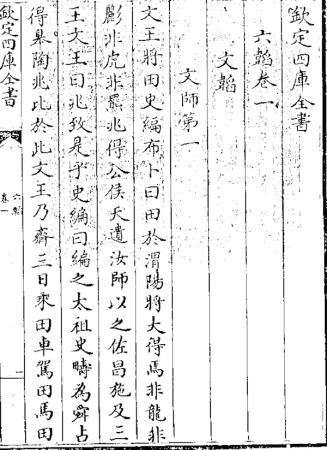 欽定四庫全書
六韜卷一
文韜
文師第一
文王將田史編布卜曰田於渭陽將大得焉非龍非
彲非虎非羆兆得公侯天遺汝師以之佐昌施及三
王文王曰兆致是乎史編曰編之太祖史疇為舜占
得皋陶兆比於此文王乃齋三日乘田車駕田馬田
欽定四庫全書
六韜
卷一
一